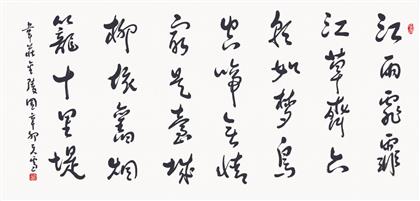 江雨霏霏
江草齊六
朝如夢鳥
空啼無情
最是臺城
柳依舊烟
籠十里堤
韋莊金陵圖辛卯